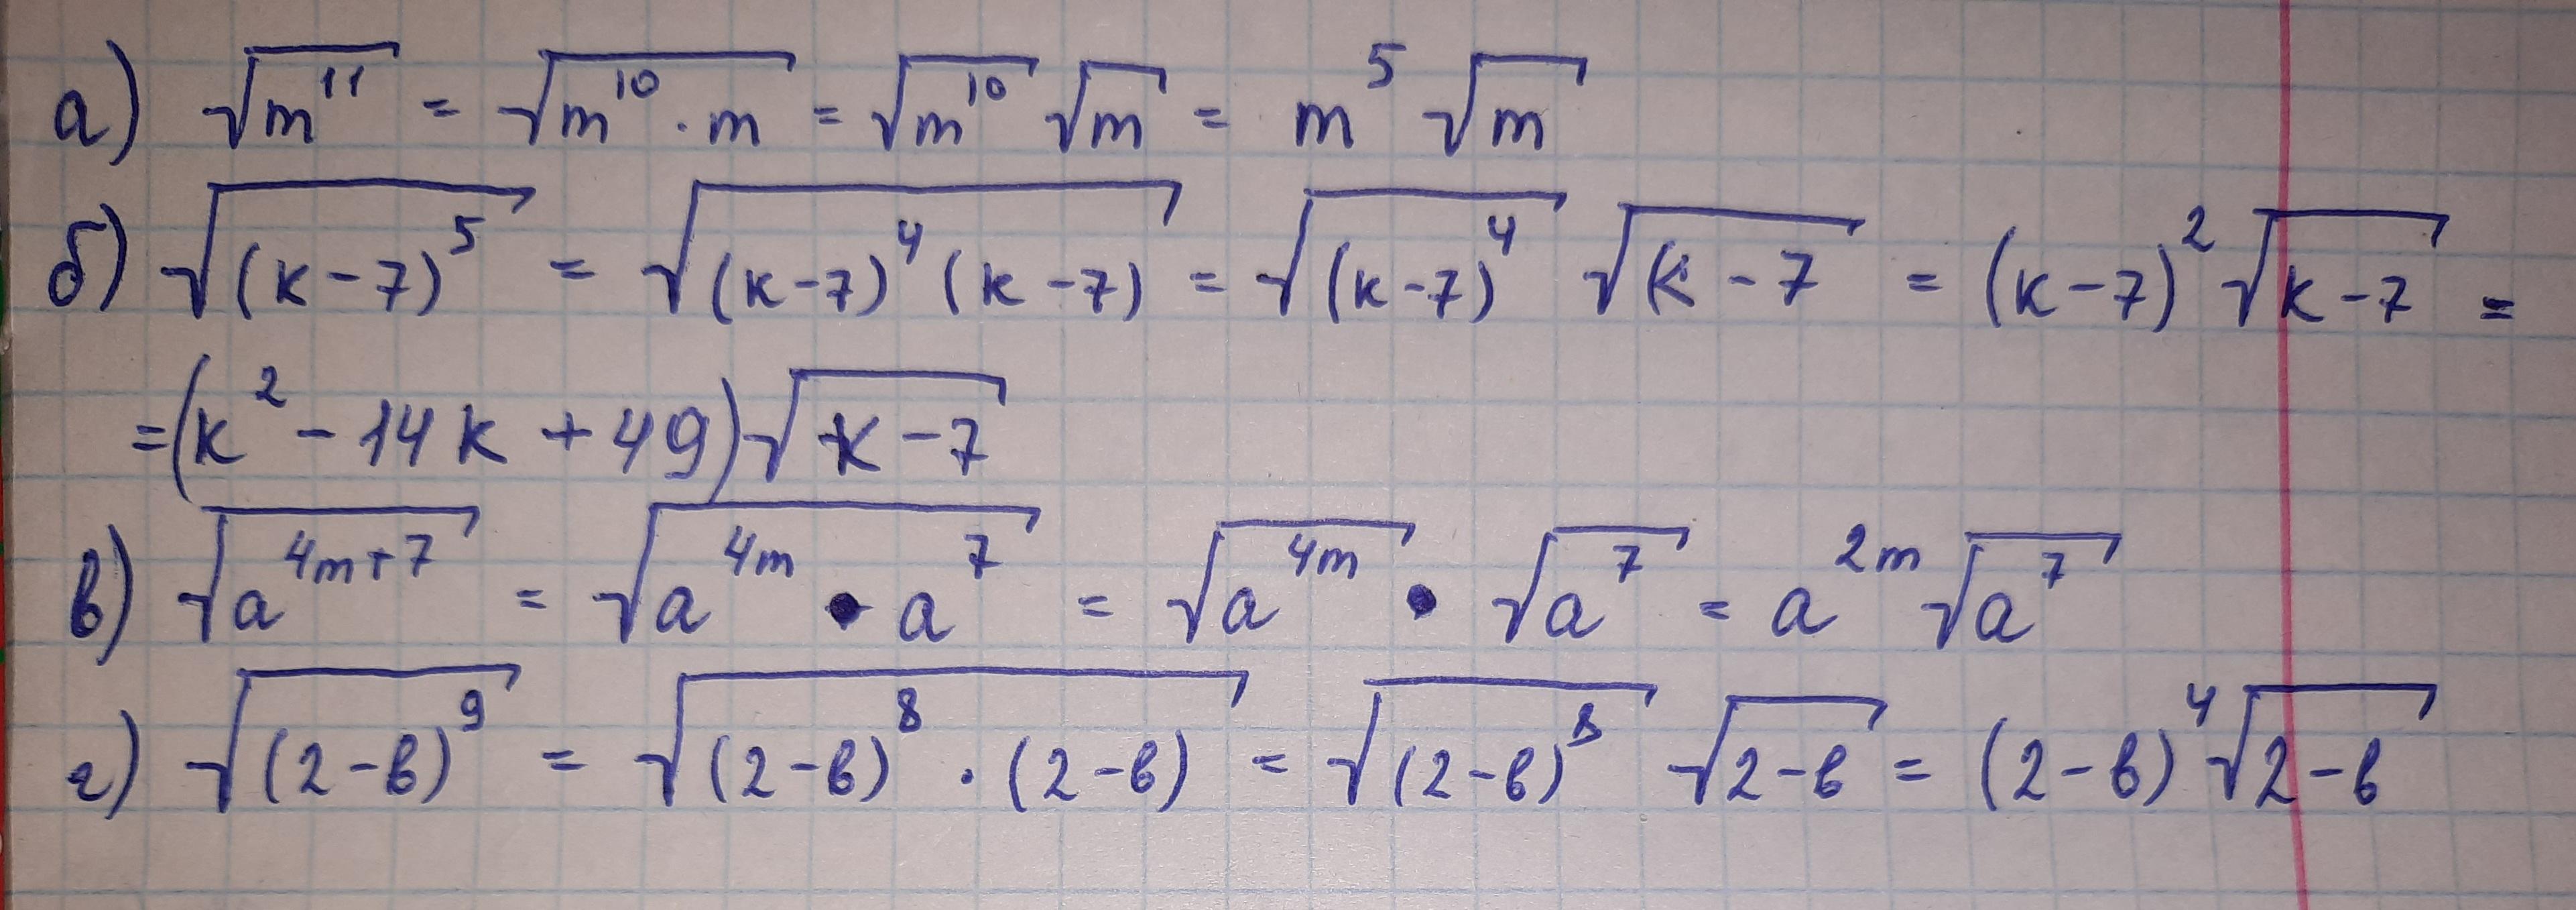 а) √m¹¹ = √m¹⁰ · m = √m¹⁰ √m = m⁵ √m
б) √(к-7)⁵ = √(к-7)⁴(к-7) = √(к-7)⁴ √к-7 = (к-7)² √к-7 =
= (к² - 14к + 49) √к-7
в) √a⁴ᵐ⁺⁷ = √a⁴ᵐ · a⁷ = √a⁴ᵐ · √a⁷ = a²ᵐ √a⁷
г) √(2-в)⁹ = √(2-в)⁸ · (2-в) = √(2-в)⁸ √2-в = (2-в)⁴ √2-в